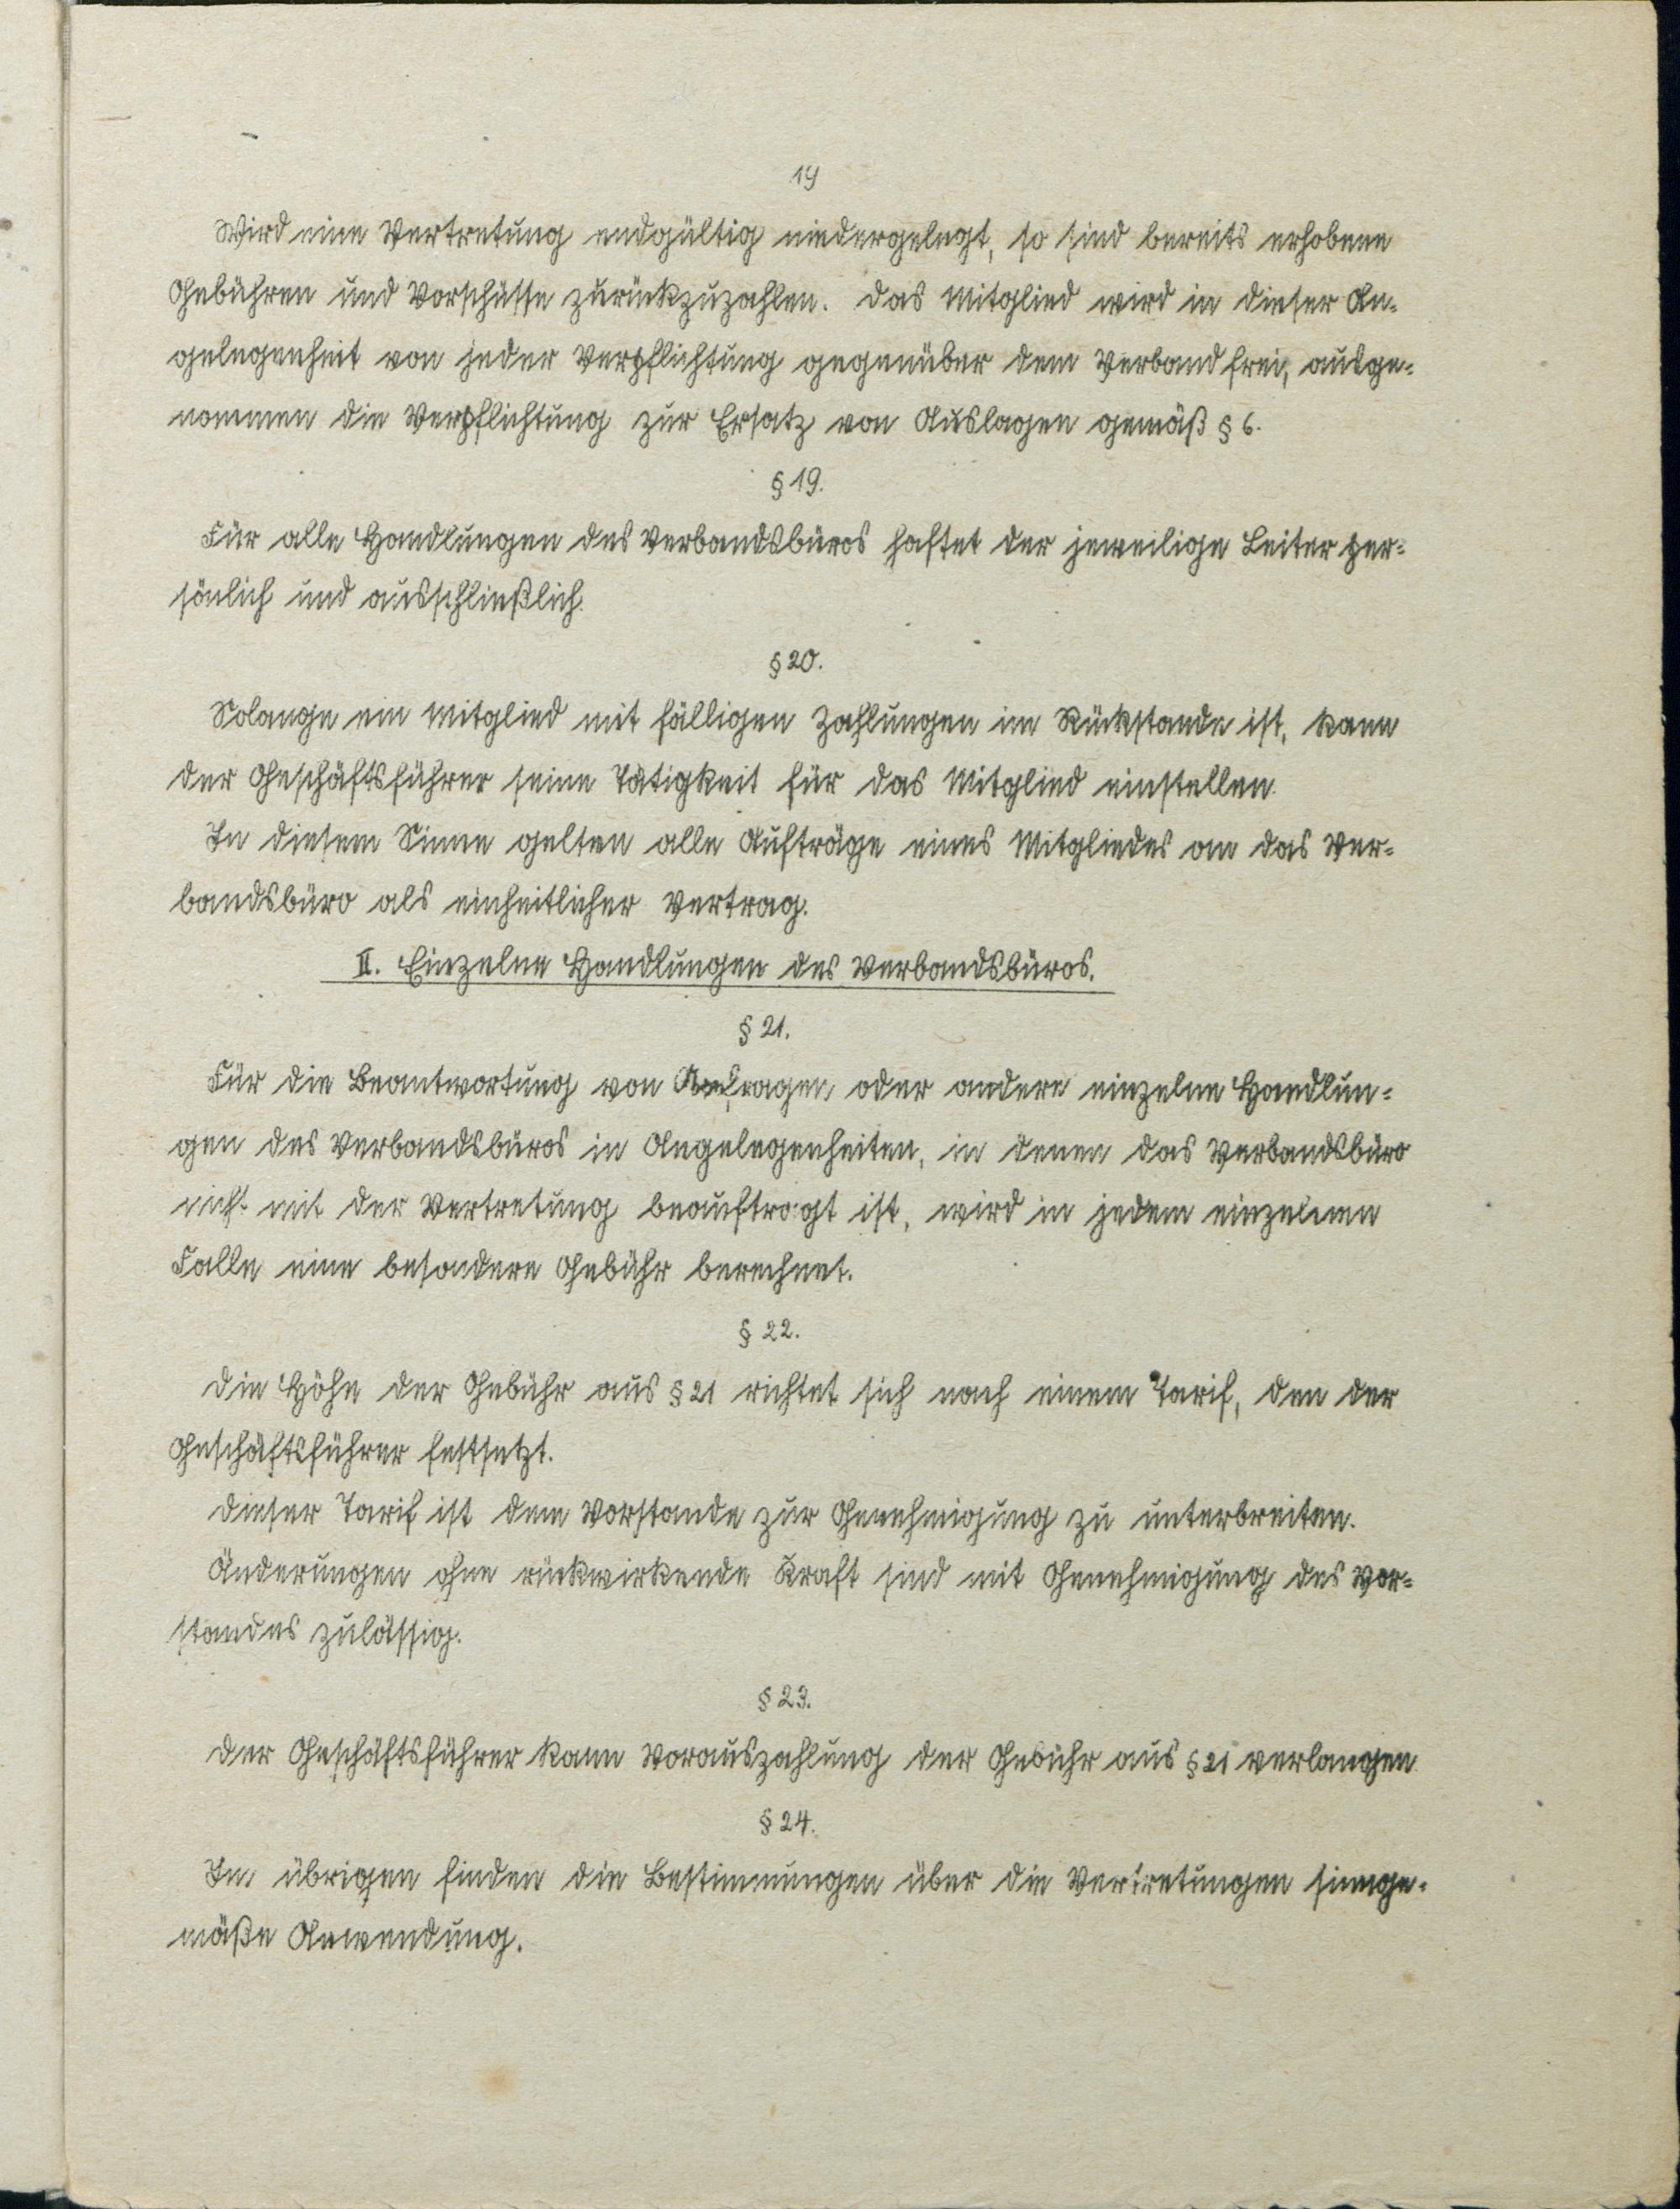 19
Wird eine Vertretung endgültig niedergelegt, so sind bereits erhobene
Gebühren und Vorschüsse zurückzuzahlen. Das Mitglied wird in dieser An-
gelegenheit von jeder Verpflichtung gegenüber dem Verband frei, ausge-
nommen die Verpflichtung zur Ersatz von Auslagen gemäß § 6.
§ 19.
Für alle Handlungen des Verbandsbüros haftet der jeweilige Leiter per-
sönlich und ausschließlich.
§ 20.
Solange ein Mitglied mit fälligen Zahlungen im Rückstande ist, kann
der Geschäftsführer seine Tätigkeit für das Mitglied einstellen.
In diesem Sinne gelten alle Aufträge eines Mitgliedes an das Ver-
bandsbüro als einheitlicher Vertrag.
II. Einzelne Handlungen des Verbandsbüros.
§ 21.
Für die Beantwortung von Anfragen oder andere einzelne Handlun-
gen des Verbandsbüros in Angelegenheiten, in denen das Verbandsbüro
nicht mit der Vertretung beauftragt ist, wird in jedem einzelnen
Falle eine besondere Gebühr berechnet.
§ 22.
Die Höhe der Gebühr aus § 21 richtet sich nach einem Tarif, den der
Geschäftsführer festsetzt.
Dieser Tarif ist dem Vorstande zur Genehmigung zu unterbreiten.
Änderungen ohne rückwirkende Kraft sind mit Genehmigung des Vor-
standes zulässig.
§ 23.
Der Geschäftsführer kann Vorauszahlung der Gebühr aus § 21 verlangen.
§ 24.
Im übrigen finden die Bestimmungen über die Vertretungen sinnge-
mäße Anwendung.